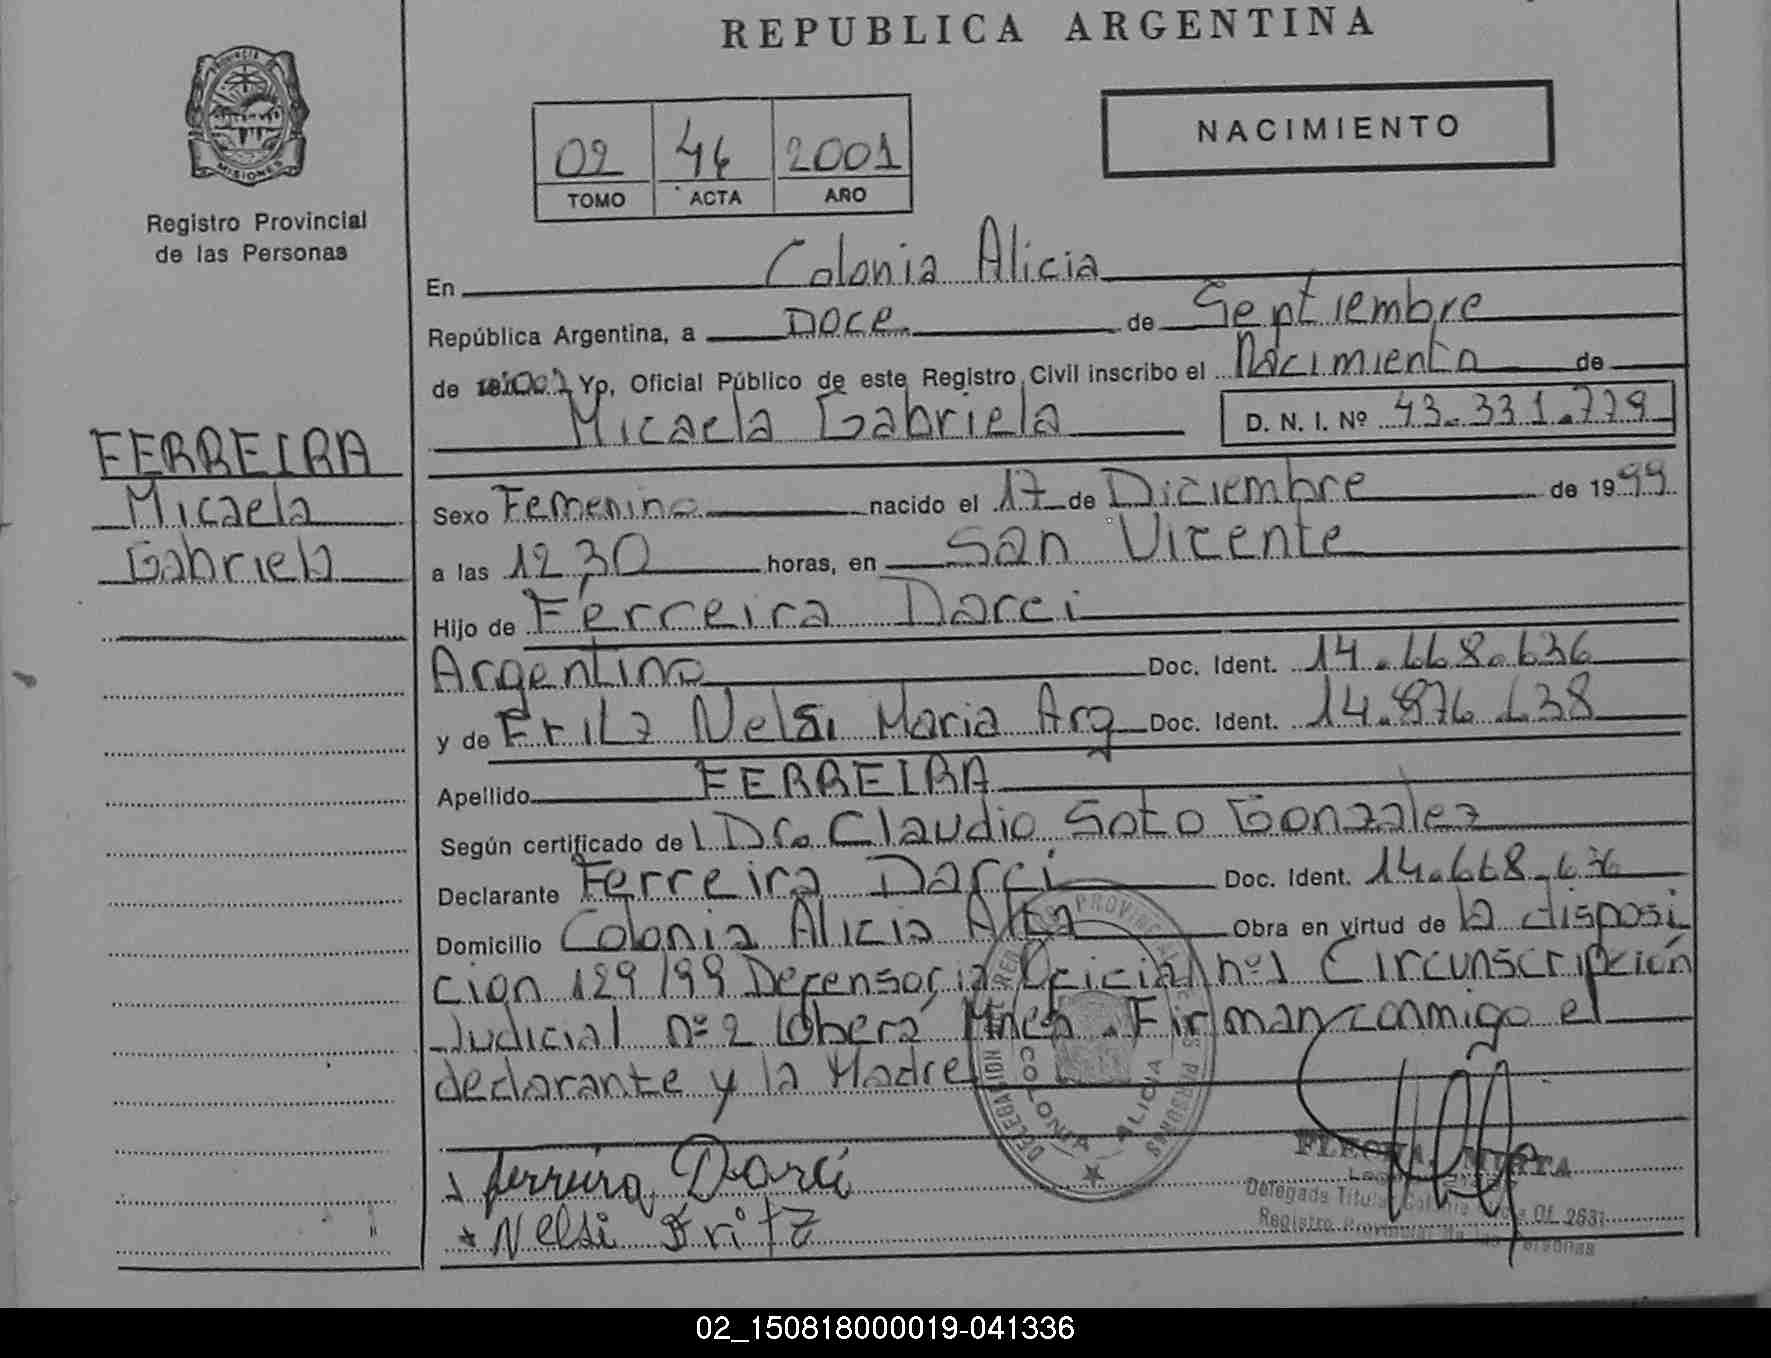 REPUBLICA ARGENTINA
PROVINCIA DE
MISIONES
Registro Provincial
de las Personas
NACIMIENTO
02 46 2001
TOMO ACTA AÑO
En Colonia Alicia
República Argentina, a Doce de Septiembre
de 2001 Yo, Oficial Público de este Registro Civil inscribo el Nacimiento de
Micaela Gabriela D. N. I. Nº 43.331.779
FERREIRA
Micaela
Gabriela
Sexo Femenino nacido el 17 de Diciembre de 1999
a las 12,30 horas, en San Vicente
Hijo de Ferreira Darci
Argentino Doc. Ident. 14.668.636
y de Fritz Nelsi Maria Arg Doc. Ident. 14.876.638
Apellido FERREIRA
Según certificado del Dr. Claudio Soto Gonzalez
Declarante Ferreira Darci Doc. Ident. 14.668.636
Domicilio Colonia Alicia Alta Obra en virtud de la disposi
cion 129/99 Defensoria Oficial nº1 Circunscripción
Judicial nº2 Oberá Mnes. Firman conmigo el
declarante y la Madre
COLONIA ALICIA
Ferreira Darci
Nelsi Fritz
Delegada Titular Colonia Of. 2631
Registro Provincial de las Personas
02_150818000019-041336